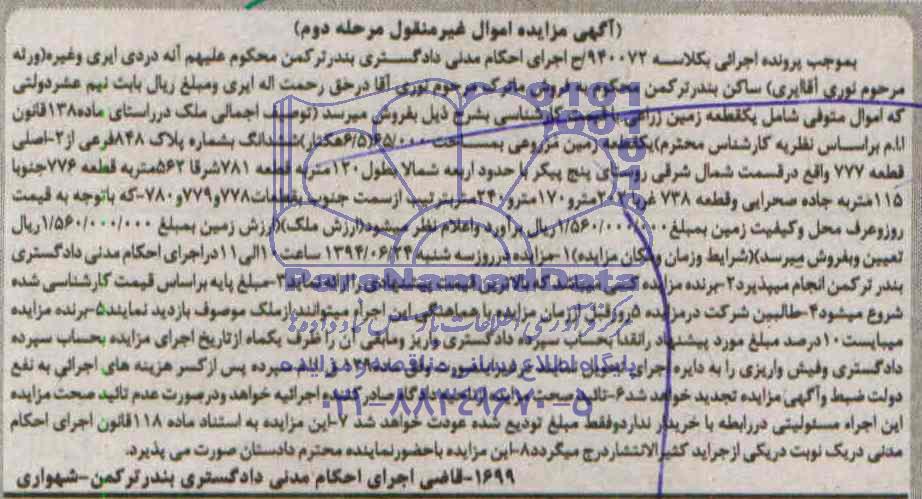 (آگهی مزایده اموال غیرمنقول مرحله دوم)
بموجب پرونده اجرائی بکلاسه ۹۴۰۰۷۲/ج اجرای احکام مدنی دادگستری بندرترکمن محکوم علیهم آنه دردی ایری وغیره(ورثه
مرحوم نوری آقاایری) ساکن بندرترکمن محکوم به فروش ماترک مرحوم نوری آقا درحق رحمت اله ایری ومبلغ ریال بابت نیم عشردولتی
که اموال متوفی شامل یکقطعه زمین زراعی با قیمت کارشناسی بشرح ذیل بفروش میرسد (توصیف اجمالی ملک درراستای ماده۱۳۸قانون
ا.ا.م براساس نظریه کارشناس محترم)یکقطعه زمین مزروعی بمساحت ۶۵/۰۰۰(۶/۵هکتار)ششدانگ بشماره پلاک ۸۴۸فرعی از۲-اصلی
قطعه ۷۷۷ واقع درقسمت شمال شرقی روستای پنج پیکر با حدود اربعه شمالا بطول۱۲۰متربه قطعه ۷۸۱شرقا ۵۶۲متربه قطعه ۷۷۶جنوبا
۱۱۵متربه جاده صحرایی وقطعه ۷۳۸ غربا ۲۰۲مترو۱۷۰مترو۲۴۰متربترتیب ازسمت جنوب بقطعات۷۷۸و۷۷۹و۷۸۰-که باتوجه به قیمت
روزوعرف محل وکیفیت زمین بمبلغ ۱/۵۶۰/۰۰۰/۰۰۰ریال برآورد واعلام نظر میشود(ارزش ملک)(ارزش زمین بمبلغ ۱/۵۶۰/۰۰۰/۰۰۰ریال
تعیین وبفروش میرسد)(شرایط وزمان ومکان مزایده)۱-مزایده درروزسه شنبه ۱۳۹۴/۰۶/۲۴ ساعت ۱۰الی۱۱دراجرای احکام مدنی دادگستری
بندر ترکمن انجام میپذیرد۲-برنده مزایده کسی میباشد که بالاترین قیمت پیشنهادی را ارائه نماید۳-مبلغ پایه براساس قیمت کارشناسی شده
شروع میشود۴-طالبین شرکت درمزایده ۵روزقبل اززمان مزایده با هماهنگی این اجرا میتوانند ازملک موصوف بازدید نمایند۵-برنده مزایده
میبایست۱۰درصد مبلغ مورد پیشنهاد رانقدا بحساب سپرده دادگستری واریز ومابقی آن را ظرف یکماه ازتاریخ اجرای مزایده بحساب سپرده
دادگستری وفیش واریزی را به دایره اجرای
دولت ضبط وآگهی مزایده تجدید خواهد شد۶-تائید صحت مزایده ازناحیه دادگاه صادرکننده اجرائیه خواهد ودرصورت عدم تائید صحت مزایده
این اجراء مسئولیتی دررابطه با خریدار نداردوفقط مبلغ تودیع شده عودت خواهد شد ۷-این مزایده به استناد ماده ۱۱۸قانون اجرای احکام
مدنی دریک نوبت دریکی ازجراید کثیرالانتشاردرج میگردد۸-این مزایده باحضورنماینده محترم دادستان صورت می پذیرد.
۱۶۹۹-قاضی اجرای احکام مدنی دادگستری بندرترکمن-شهواری
ParsNamadData
پایگاه اطلاع رسانی مناقصه و مزایده
۰۲۱-۸۸۳۴۹۶۷۰-۵